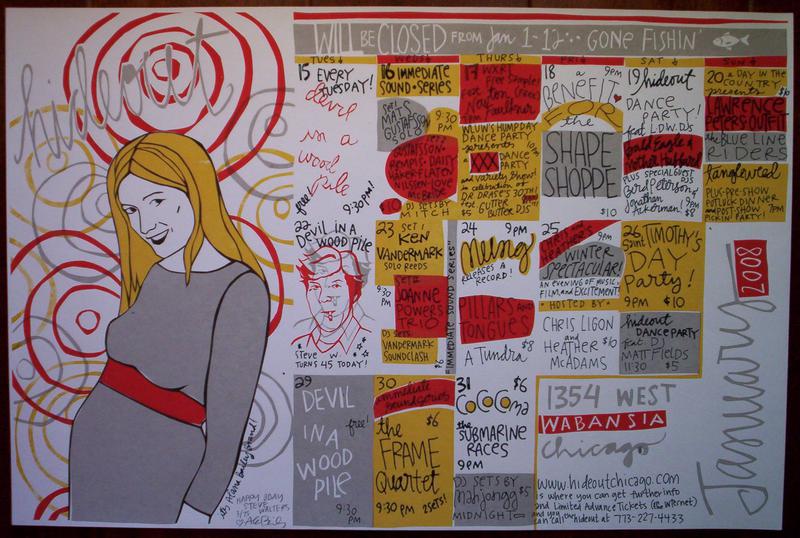 hideout
WILL BE CLOSED FROM Jan 1-12... GONE FISHIN'
TUES
WEDS
THURS
FRI
SAT
SUN
15 EVERY
TUESDAY!
devil
in a
wood
pile
free!
9:30PM!
16 IMMEDIATE
SOUND SERIES
SET 1
MATS
GUSTAFSSON
SOLO
9:30
PM
SET 2
GUSTAFSSON-
REMPIS-DAISY
HAKER FLATEN
NILSSEN-LOVE
McBRIDE
$10
DJ SETS BY
MITCH
17 WXRT
Free Samples
9PM
18
a
BENEFIT
FOR
the
SHAPE
SHOPPE
$10
WLUW'S HUMPDAY
DANCE PARTY
presents
10PM
XXX DANCE
PARTY
and variety show!
in celebration of
DR. DRASE'S 30TH!
GUTTER
BUTTER DJs
$5
19 hideout
DANCE
PARTY!
feat L.D.W. DJS
Bald Eagle &
Mother Hubbard
PLUS SPECIAL GUEST
DJS
Bird Peterson &
Jonathan
Ackerman!
$8
20 a DAY IN THE
COUNTRY
presents
LAWRENCE
PETERS OUTFIT
the BLUE LINE
RIDERS
Tanglewted
PLUS-PRE-SHOW
POTLUCK DINNER
AND POST-SHOW 7PM
PICKIN' PARTY!
22 DEVIL IN A
WOOD PILE
STEVE W.
TURNS 45 TODAY!
23 SET 1
KEN
VANDERMARK
SOLO REEDS
9:30
PM
SET 2
JOANNE
POWERS
TRIO
DJ SETS
VANDERMARK
SOUNDCLASH
$6
"IMMEDIATE SOUND SERIES"
24 9PM
Mung
RELEASES A
RECORD!
PILLARS AND
TONGUES
A Tundra
$8
25
CHRIS AND
HEATHER'S
9PM
WINTER
SPECTACULAR!
AN EVENING OF MUSIC,
FILM AND EXCITEMENT!
HOSTED BY
CHRIS LIGON
and
HEATHER
McADAMS
$10
26 Saint
TIMOTHY'S
DAY
Party!
9PM $10
hideout
DANCE PARTY
feat. DJ
MATT FIELDS
11:30 $5
29
DEVIL
IN A
WOOD
PILE
free!
9:30
PM
30
immediate
sound series
$6
the
FRAME
Quartet
9:30 PM 2 SETS!
31 $6
CoCoComa
the SUBMARINE
RACES
9PM
DJ SETS BY
Mahjongg $5
MIDNIGHT
1354 WEST
WABANSIA
chicago
www.hideoutchicago.com
is where you can get further info
and Limited Advance Tickets
and you
can call the hideout at 773-227-4433
January 2008
HAPPY BDAY
STEVE
WALTERS